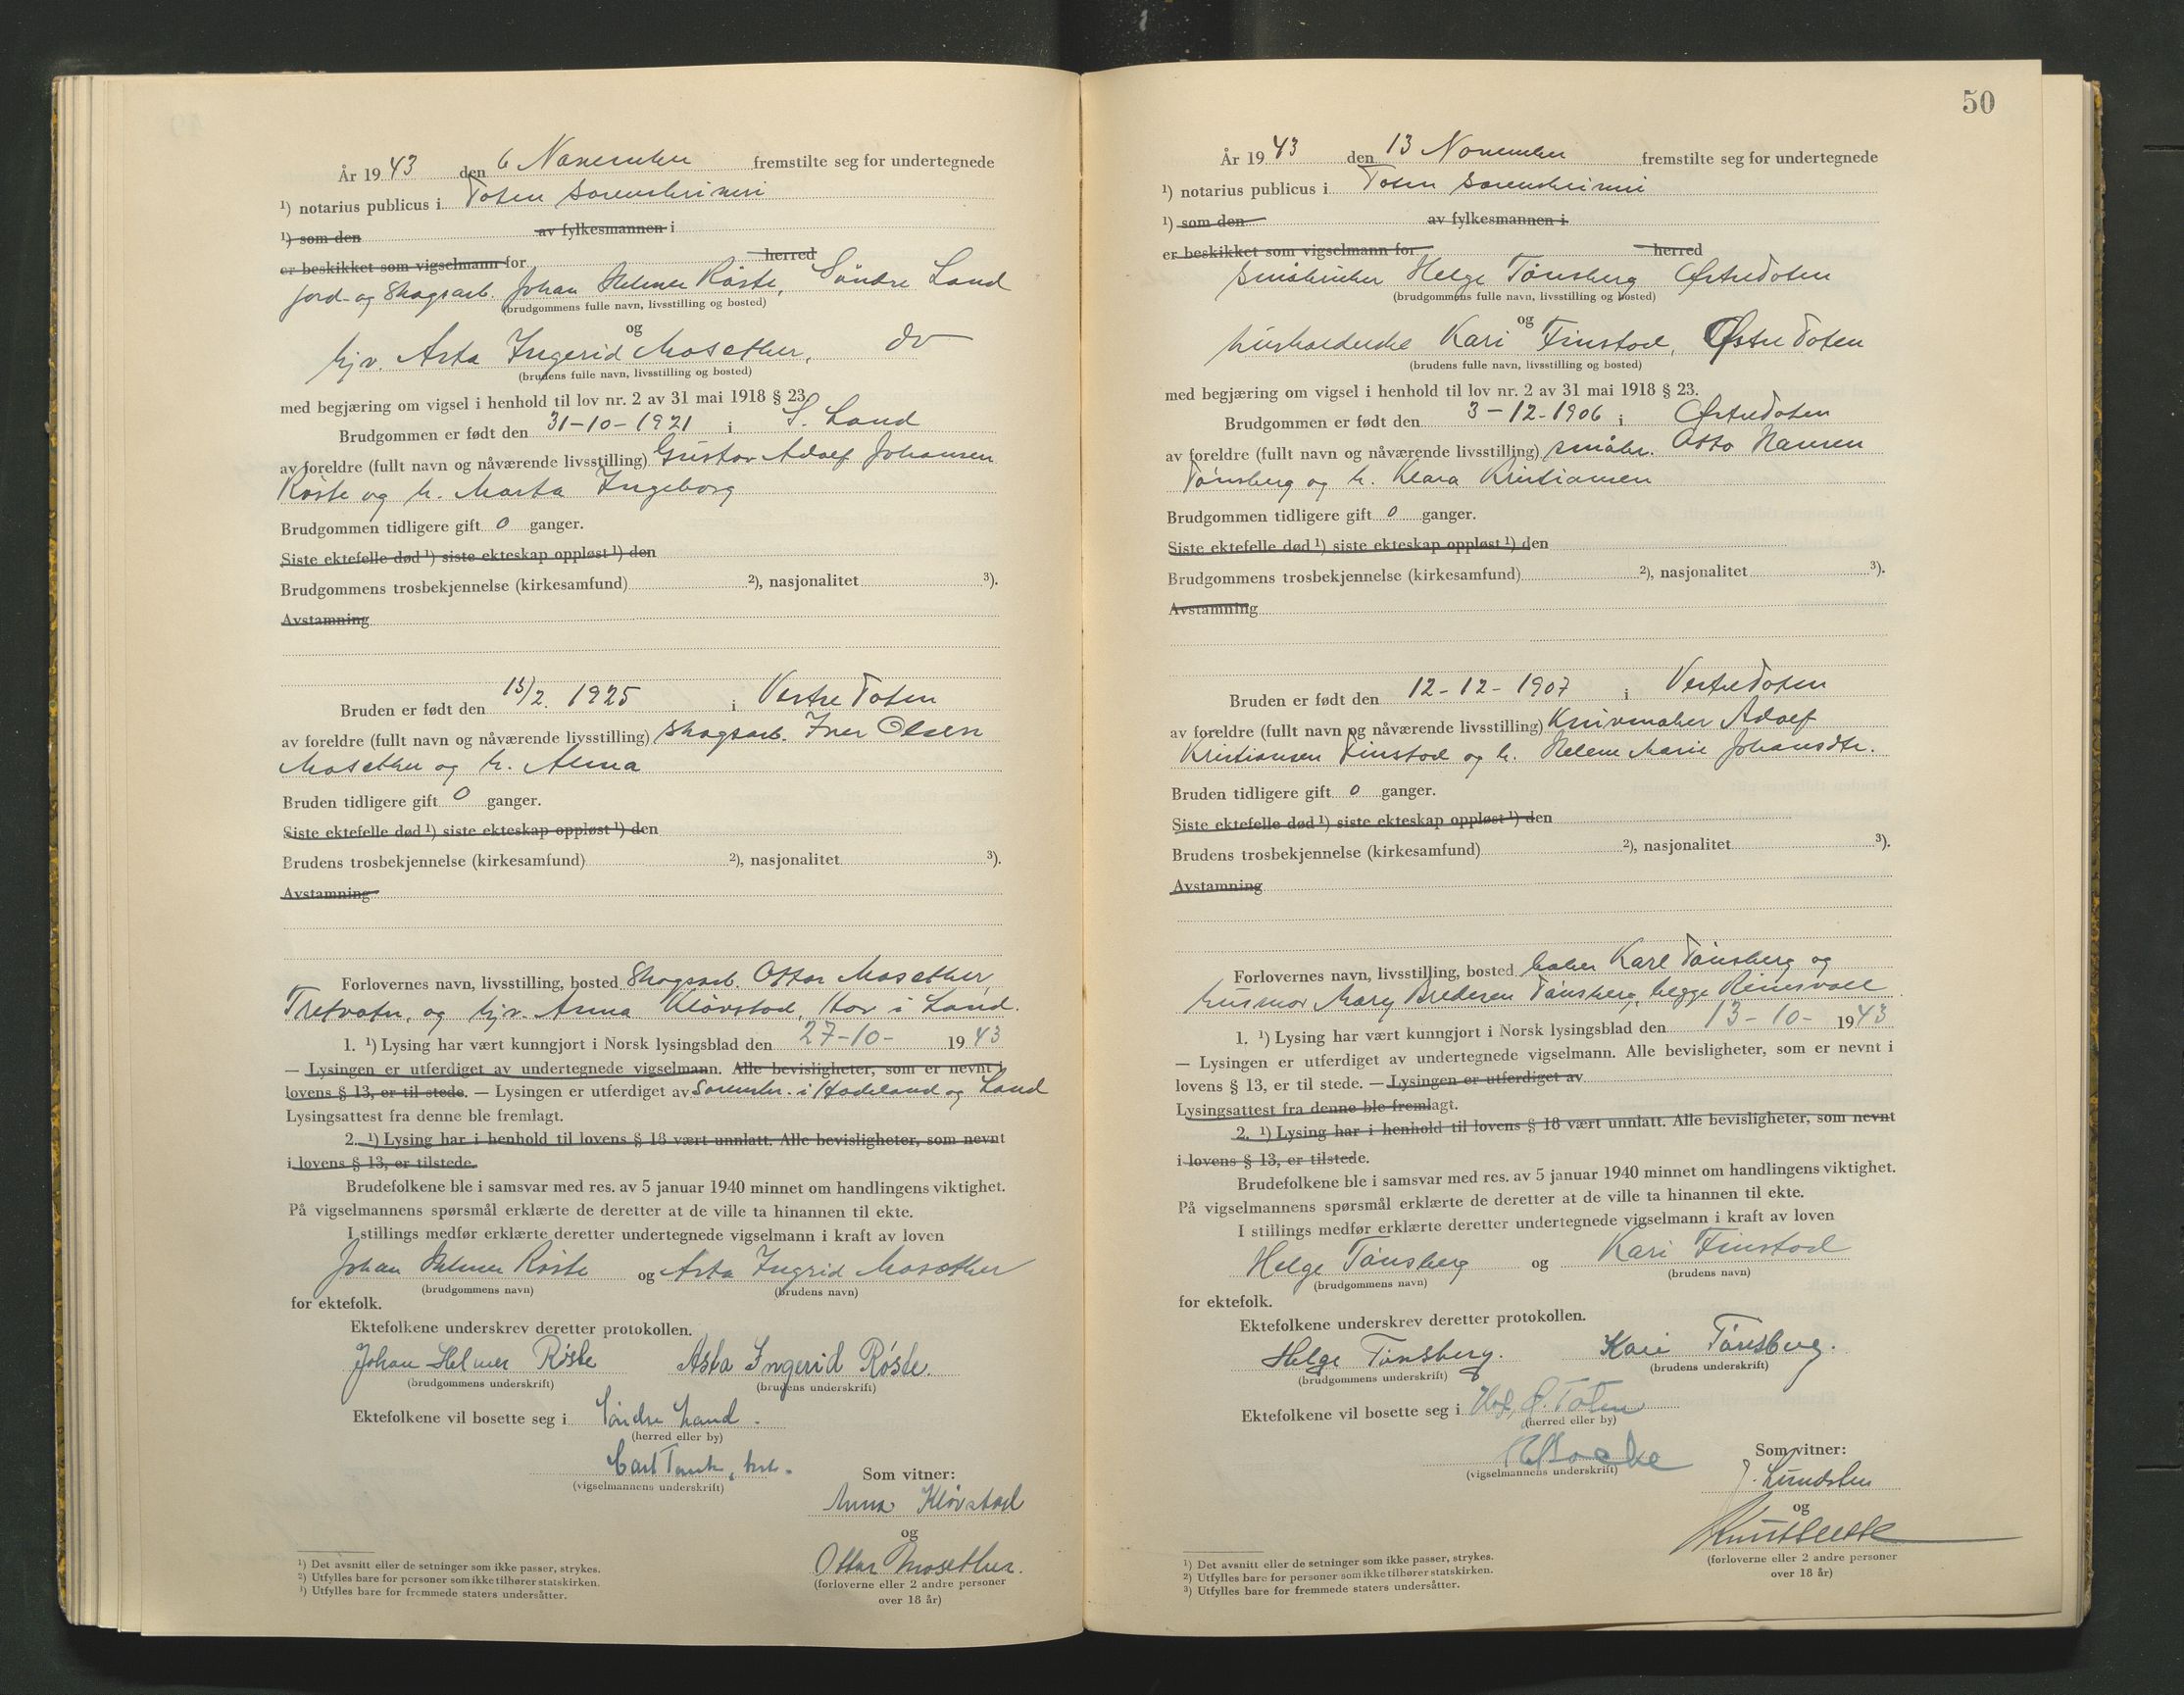 År 1943 den 6 November fremstilte seg for undertegnede
¹) notarius publicus i Toten sorenskriveri
¹) som den av fylkesmannen i
er beskikket som vigselmann for herred
jord- og skogsarb. Johan Helmer Røste, Søndre Land
(brudgommens fulle navn, livsstilling og bosted)
og
hjv. Asta Ingerid Mosether, do
(brudens fulle navn, livsstilling og bosted)
med begjæring om vigsel i henhold til lov nr. 2 av 31 mai 1918 § 23.
Brudgommen er født den 31-10-1921 i S. Land
av foreldre (fullt navn og nåværende livsstilling) Gustav Adolf Johansen
Røste og h. Marta Ingeborg
Brudgommen tidligere gift 0 ganger.
Siste ektefelle død ¹) siste ekteskap oppløst ¹) den
Brudgommens trosbekjennelse (kirkesamfund) ²), nasjonalitet ³).
Avstamning
Bruden er født den 15/2. 1925 i Vestre Toten
av foreldre (fullt navn og nåværende livsstilling) skogsarb. Iver Olsen
Mosether og h. Alma
Bruden tidligere gift 0 ganger.
Siste ektefelle død ¹) siste ekteskap oppløst ¹) den
Brudens trosbekjennelse (kirkesamfund) ²), nasjonalitet ³).
Avstamning
Forlovernes navn, livsstilling, bosted Skogsarb. Ottar Mosether,
Tretvatn, og hjv. Anna Kløvstad, Hov i Land.
1. ¹) Lysing har vært kunngjort i Norsk lysingsblad den 27-10- 1943
— Lysingen er utferdiget av undertegnede vigselmann. Alle bevisligheter, som er nevnt i
lovens § 13, er til stede. — Lysingen er utferdiget av Sorenskr. i Hadeland og Land
Lysingsattest fra denne ble fremlagt.
2. ¹) Lysing har i henhold til lovens § 18 vært unnlatt. Alle bevisligheter, som nevnt
i lovens § 13, er tilstede.
Brudefolkene ble i samsvar med res. av 5 januar 1940 minnet om handlingens viktighet.
På vigselmannens spørsmål erklærte de deretter at de ville ta hinannen til ekte.
I stillings medfør erklærte deretter undertegnede vigselmann i kraft av loven
Johan Helmer Røste og Asta Ingrid Mosether
(brudgommens navn) (brudens navn)
for ektefolk.
Ektefolkene underskrev deretter protokollen.
Johan Helmer Røste Asta Ingerid Røste.
(brudgommens underskrift) (brudens underskrift)
Ektefolkene vil bosette seg i Søndre Land.
(herred eller by)
Carl
(vigselmannens underskrift)
Som vitner:
Anna Kløvstad
og
Ottar Mosether.
(forloverne eller 2 andre personer
over 18 år)
¹) Det avsnitt eller de setninger som ikke passer, strykes.
²) Utfylles bare for personer som ikke tilhører statskirken.
³) Utfylles bare for fremmede staters undersåtter.
50
År 1943 den 13 November fremstilte seg for undertegnede
¹) notarius publicus i Toten sorenskriveri
¹) som den av fylkesmannen i
er beskikket som vigselmann for herred
småbruker Helge Tønsberg Østre Toten
(brudgommens fulle navn, livsstilling og bosted)
og
husholderske Kari Finstad, Østre Toten
(brudens fulle navn, livsstilling og bosted)
med begjæring om vigsel i henhold til lov nr. 2 av 31 mai 1918 § 23.
Brudgommen er født den 3-12-1906 i Østre Toten
av foreldre (fullt navn og nåværende livsstilling) småbr. Otto Hansen
Tønsberg og h. Klara Kristiansen
Brudgommen tidligere gift 0 ganger.
Siste ektefelle død ¹) siste ekteskap oppløst ¹) den
Brudgommens trosbekjennelse (kirkesamfund) ²), nasjonalitet ³).
Avstamning
Bruden er født den 12-12-1907 i Vestre Toten
av foreldre (fullt navn og nåværende livsstilling) Knivmaker Adolf
Kristiansen Finstad og h. Helene Marie Johansdtr.
Bruden tidligere gift 0 ganger.
Siste ektefelle død ¹) siste ekteskap oppløst ¹) den
Brudens trosbekjennelse (kirkesamfund) ²), nasjonalitet ³).
Avstamning
Forlovernes navn, livsstilling, bosted baker Karl Tønsberg og
husmor Mary Bredesen Tønsberg, begge Reinsvoll
1. ¹) Lysing har vært kunngjort i Norsk lysingsblad den 13-10- 1943
— Lysingen er utferdiget av undertegnede vigselmann. Alle bevisligheter, som er nevnt i
lovens § 13, er til stede. — Lysingen er utferdiget av
Lysingsattest fra denne ble fremlagt.
2. ¹) Lysing har i henhold til lovens § 18 vært unnlatt. Alle bevisligheter, som nevnt
i lovens § 13, er tilstede.
Brudefolkene ble i samsvar med res. av 5 januar 1940 minnet om handlingens viktighet.
På vigselmannens spørsmål erklærte de deretter at de ville ta hinannen til ekte.
I stillings medfør erklærte deretter undertegnede vigselmann i kraft av loven
Helge Tønsberg og Kari Finstad
(brudgommens navn) (brudens navn)
for ektefolk.
Ektefolkene underskrev deretter protokollen.
Helge Tønsberg. Kari Tønsberg.
(brudgommens underskrift) (brudens underskrift)
Ektefolkene vil bosette seg i Ø. Toten
(herred eller by)
(vigselmannens underskrift)
Som vitner:
J. Lundsten
og
(forloverne eller 2 andre personer
over 18 år)
¹) Det avsnitt eller de setninger som ikke passer, strykes.
²) Utfylles bare for personer som ikke tilhører statskirken.
³) Utfylles bare for fremmede staters undersåtter.